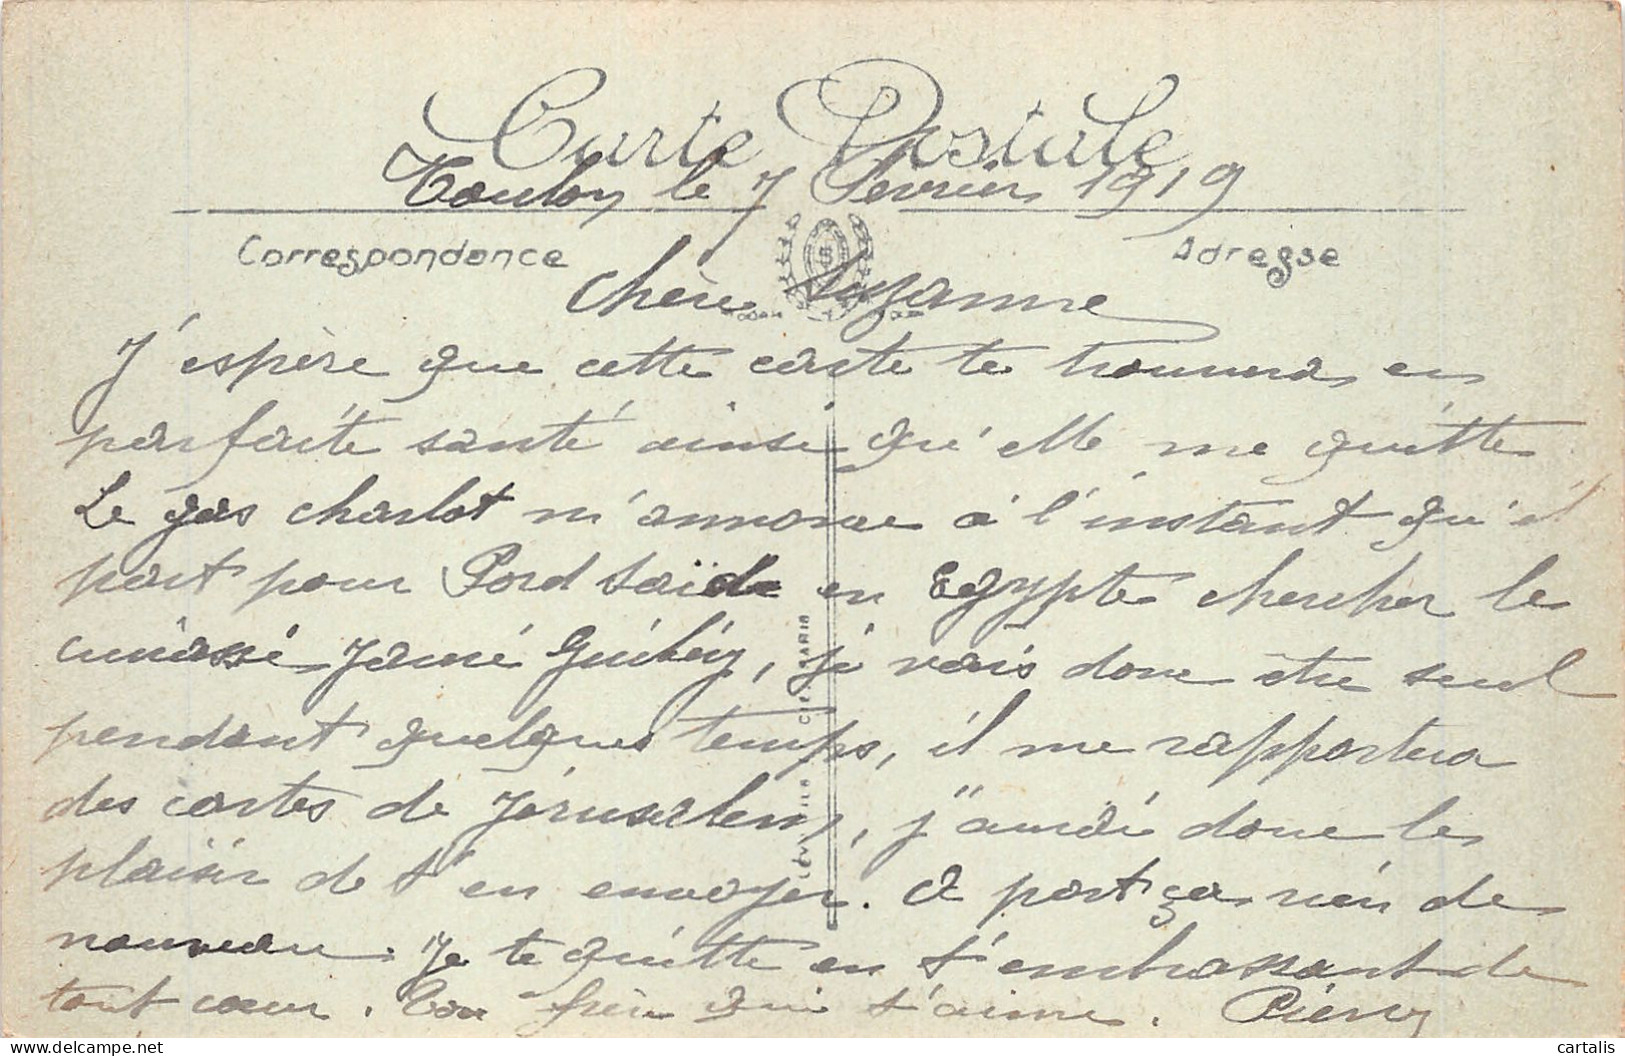 Carte Postale
Toulon le 7 Février 1919
Correspondance
Adresse
Chère Suzanne
J'espère que cette carte te trouvera en
parfaite santé ainsi qu'elle me quitte
Le gas charlot m'annonce à l'instant qu'il
part pour Pord Saïde en Egypte chercher le
cuirassé, je vais donc être seul
pendant quelques temps, il me rapportera
des cartes de Jérusalem, j'aurai donc le
plaisir de t'en envoyer. A part ça rien de
nouveau. Je te quitte en t'embrassant de
tout cœur. Ton frère qui t'aime. Pierre
cartalis